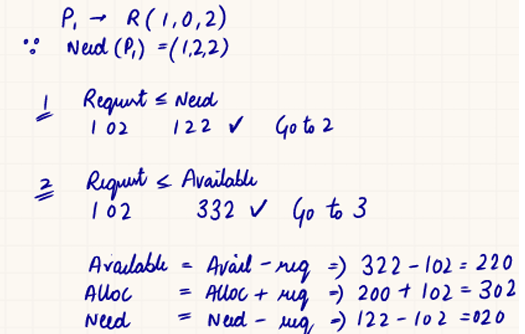 P₁ → R(1,0,2)
∵ Need (P₁) = (1,2,2)
1 Request ≤ Need
1 0 2 1 2 2 ✓ Go to 2
2 Request ≤ Available
1 0 2 3 3 2 ✓ Go to 3
Available = Avail - req ⇒ 322 - 102 = 220
Alloc = Alloc + req ⇒ 200 + 102 = 302
Need = Need - req ⇒ 122 - 102 = 020